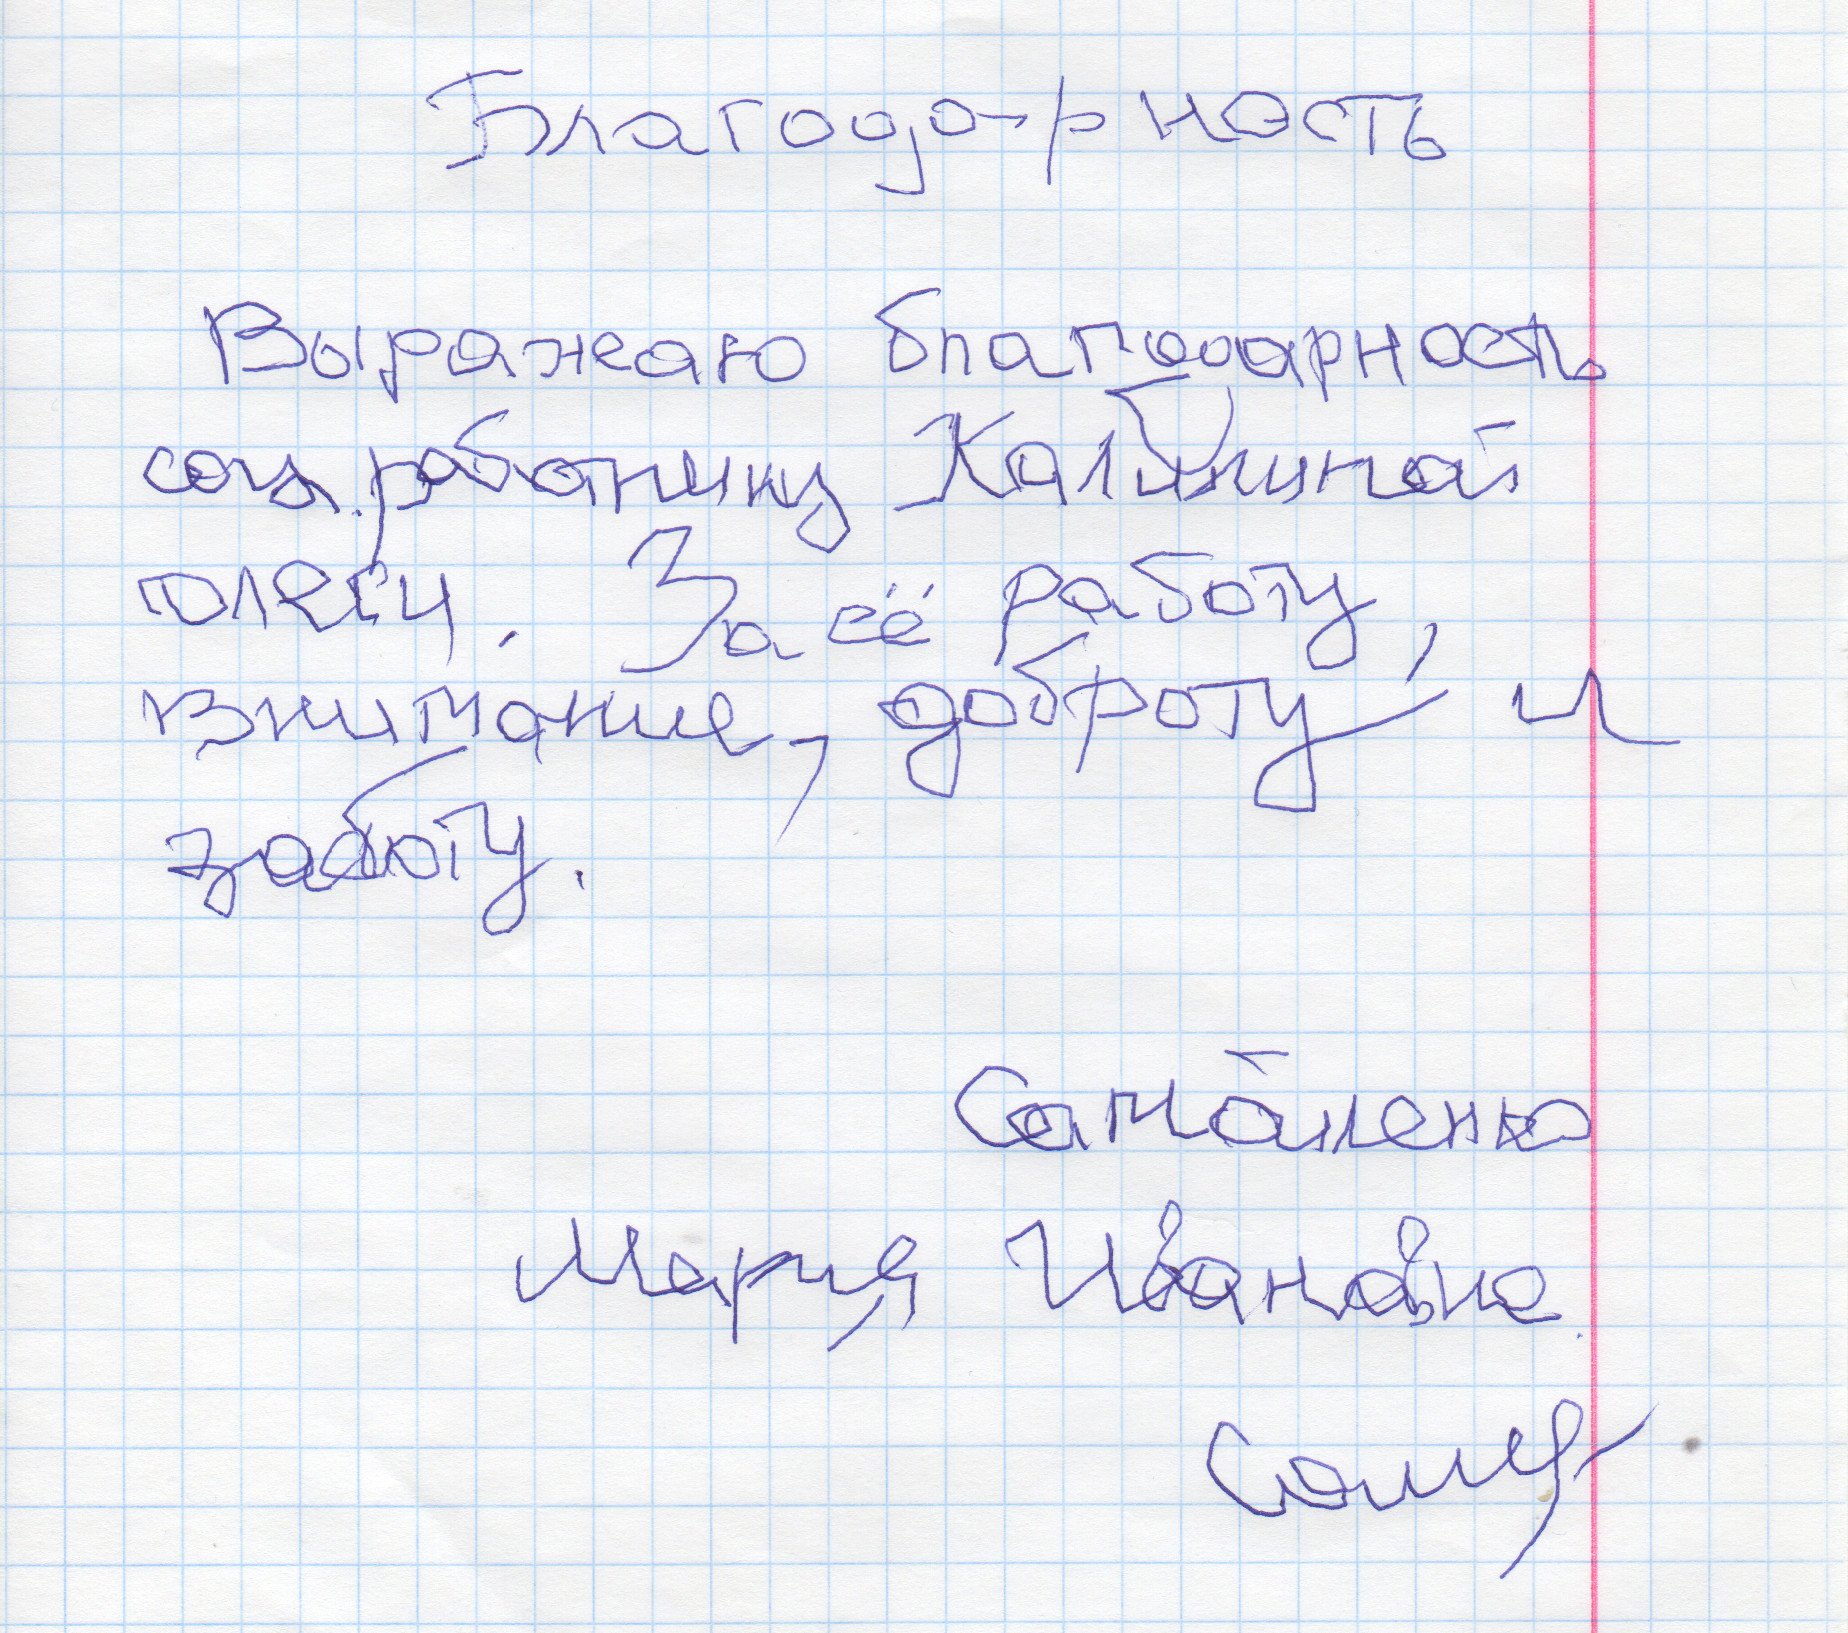 Благодарность
Выражаю благодарность
соц. работнику Калининой
Олеси. За её работу,
внимание, доброту, и
заботу.
Мария Ивановна